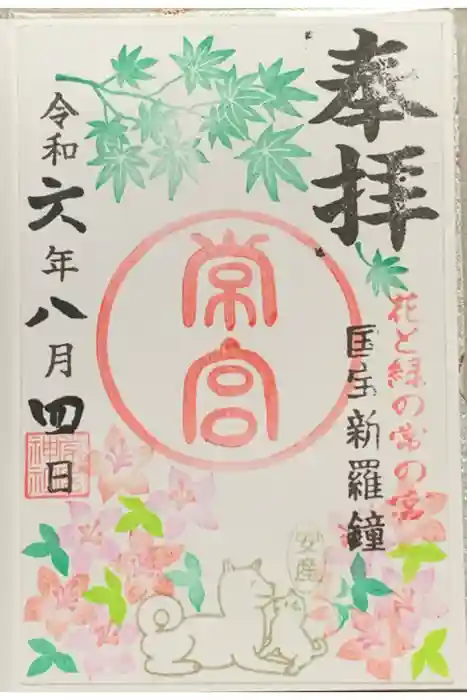 奉拝
花と緑の常の宮
国宝新羅鐘
常宮
安産
令和六年八月四日